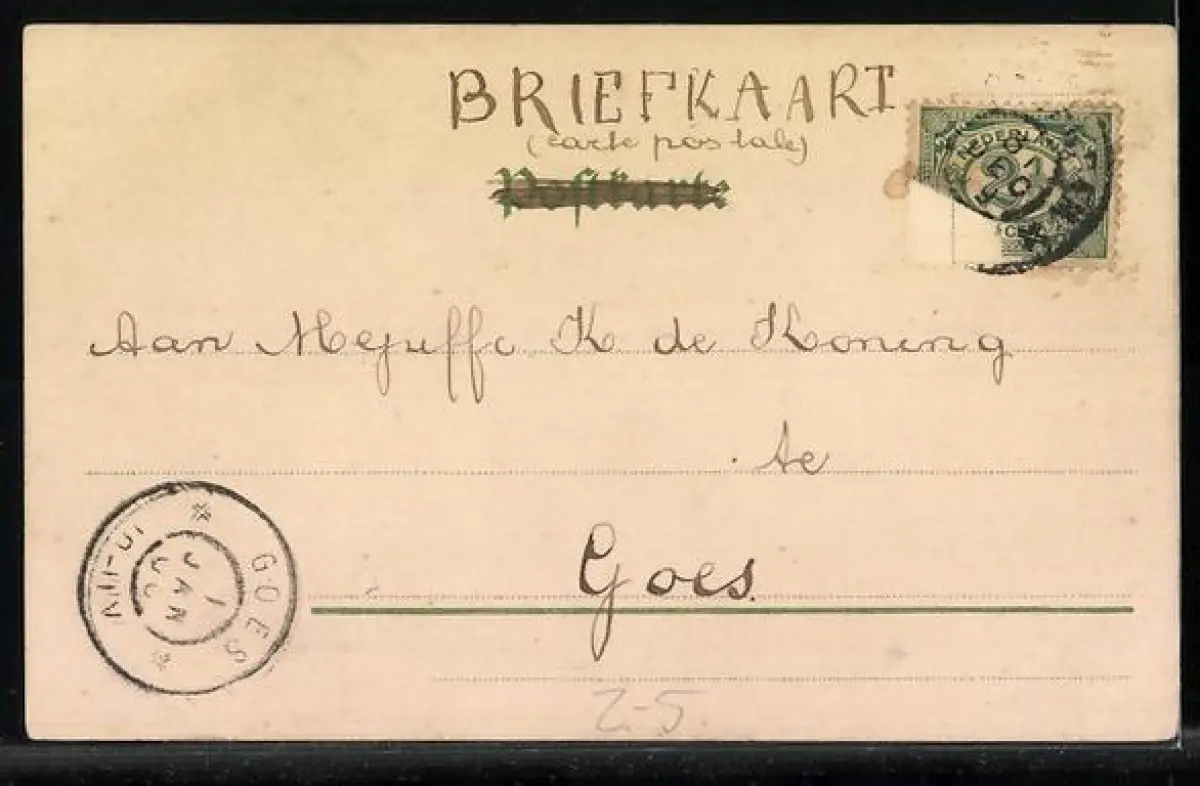 BRIEFKAART
(carte postale)
Postkarte
NEDERLAND
CENT
Aan Mejuffr K de Koning
te
Goes.
GOES
1 JAN
10-11V
2-5.